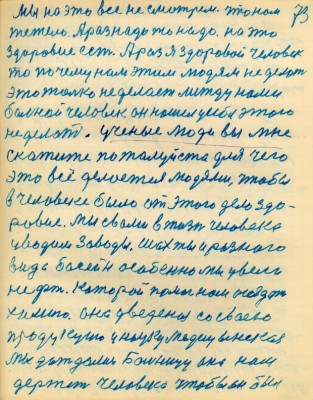 73
Мы на это все не смотрем. што нам
тежело. А раз надо то надо. на это
здоровие есть. А раз я здоровой человек
то почему нам этим людям неделат
это только неделает между нами
болной человек он нашел у себя этого
неделат. ученые люди вы мне
скажите пожалуйста для чего
это всё делоется людями, чтобы
в человеке было от этого дело здо-
ровие. Мы свами в жизн человека
уводим Заводы, шахты и разного
вида басейн особенно мы увего
нефт. Которой помог нам создат
химию. она доведена со своею
продукцию и науку медицинская
Мы дождали Болницу она нам
держет человека чтобы он был